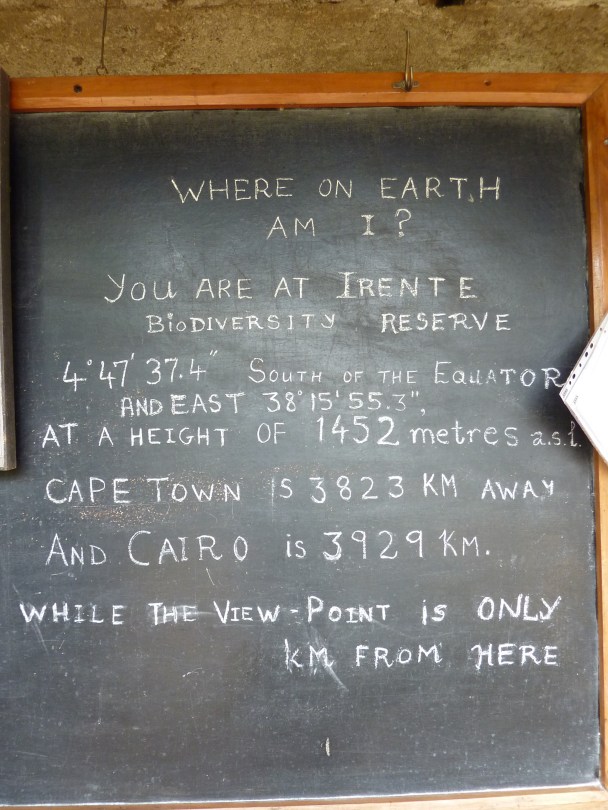 WHERE ON EARTH
AM I?
YOU ARE AT IRENTE
BIODIVERSITY RESERVE
4°47'37.4" SOUTH OF THE EQUATOR
AND EAST 38°15'55.3",
AT A HEIGHT OF 1452 metres a.s.l.
CAPE TOWN IS 3823 KM AWAY
AND CAIRO is 3929 KM.
WHILE THE VIEW-POINT is ONLY
KM FROM HERE